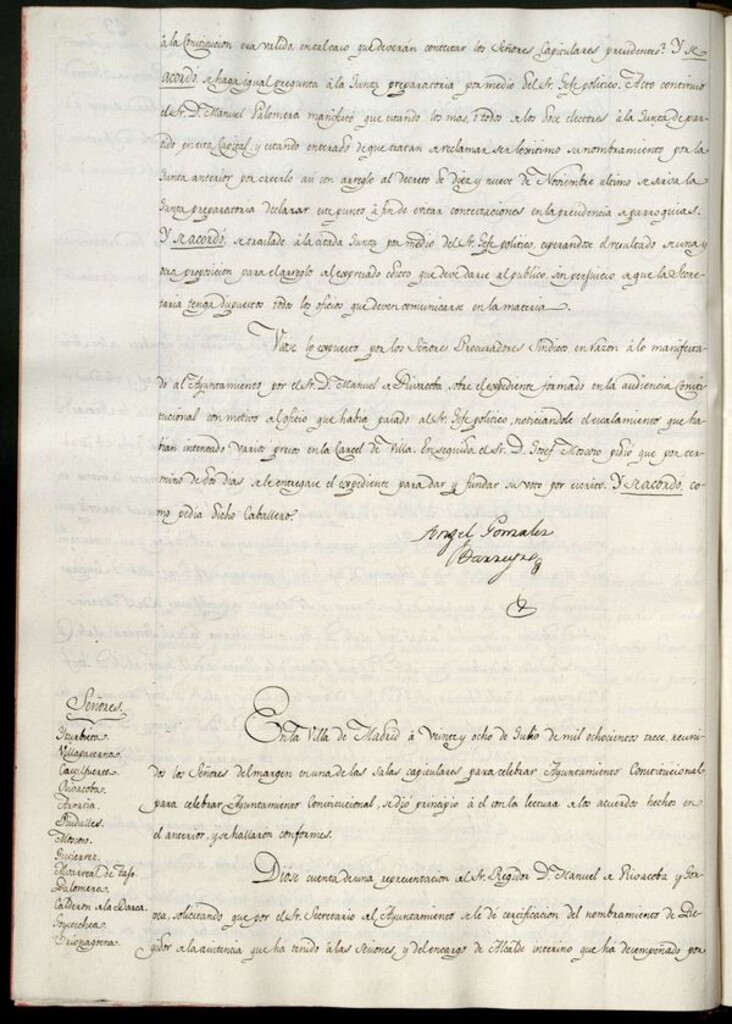 à la Constitucion era valido, en tal caso que deverán contestar los Señores Capitulares presidentes? Y se
acordó, se haga igual pregunta à la Junta preparatoria por medio del Sr. Gefe politico. Acto continuo
el Sr. D. Manuel Palomera manifestó que estando los mas, ò todos de los doce electores à la Junta de par-
tido en esta Capital, y estando enterado de que tratan de reclamar ser legitimo su nombramiento por la
Junta anterior por creerlo asi con arreglo al decreto de Diez y nueve de Noviembre ultimo se sirva la
Junta preparatoria declarar este punto à fin de evitar contestaciones en la presidencia de parroquias.
Y se acordó, se traslade à la citada Junta por medio del Sr. Gefe politico, esperandose el resultado de una y
otra proposicion para el arreglo del expresado edicto que deve darse al publico, sin perjuicio de que la Secre-
taria tenga dispuestos todos los oficios que deven comunicarse en la materia.
Viose lo expuesto por los Señores Procuradores Sindicos en razon à lo manifesta-
do al Ayuntamiento por el Sr. D. Manuel de Rivacoba sobre el expediente formado en la audiencia Consti-
tucional con motivo del oficio que habia pasado al Sr. Gefe politico, noticiandole el escalamiento que ha-
bian intentado varios presos en la Carcel de Villa. En seguida el Sr. D. Josef Moscoso pidió que por ter-
mino de dos dias se le entregase el expediente para dar y fundar su voto por escrito. Y se acordó, co-
mo pedia dicho Caballero.
Angel Gonzalez
Barreyro
Señores.
Yturbieta.
Villapaterna.
Casa fuerte.
Rivacoba.
Arratia.
Pindalles.
Moscoso.
Gutierrez.
Monreal de Jaso.
Palomera.
Calderon de la Barca.
Goycoechea.
En la Villa de Madrid à Veinte y ocho de Julio de mil ochocientos trece, reuni-
dos los Señores del margen en una de las salas capitulares para celebrar Ayuntamiento Constitucional
para celebrar Ayuntamiento Constitucional, se dió principio à el con la lectura de los acuerdos hechos en
el anterior, y se hallaron conformes.
Diose cuenta de una representacion del Sr. Regidor D. Manuel de Rivacoba y Gor-
, solicitando que por el Sr. Secretario del Ayuntamiento se le dé certificacion del nombramiento de Re-
gidor de la asistencia que ha tenido à las sesiones, y del encargo de Alcalde interino que ha desempeñado por